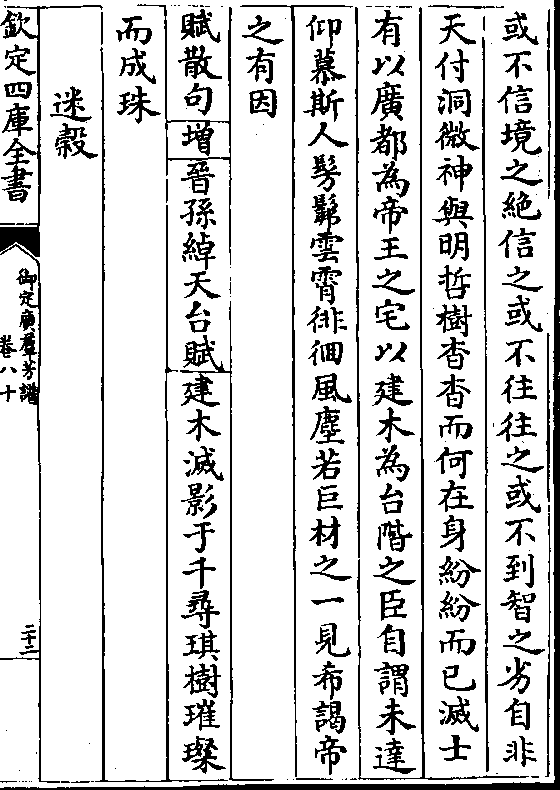 或不信境之絶信之或不往往之或不到智之劣自非
天付洞微神與明哲樹杳杳而何在身紛紛而已滅士
有以廣都為帝王之宅以建木為台階之臣自謂未達
仰慕斯人髣髴雲霄徘徊風塵若巨材之一見希謁帝
之有因
賦散句增晉孫綽天台賦建木滅影于千尋琪樹璀璨
而成珠
迷穀
欽定四庫全書
御定廣羣芳譜
卷八十
二十二